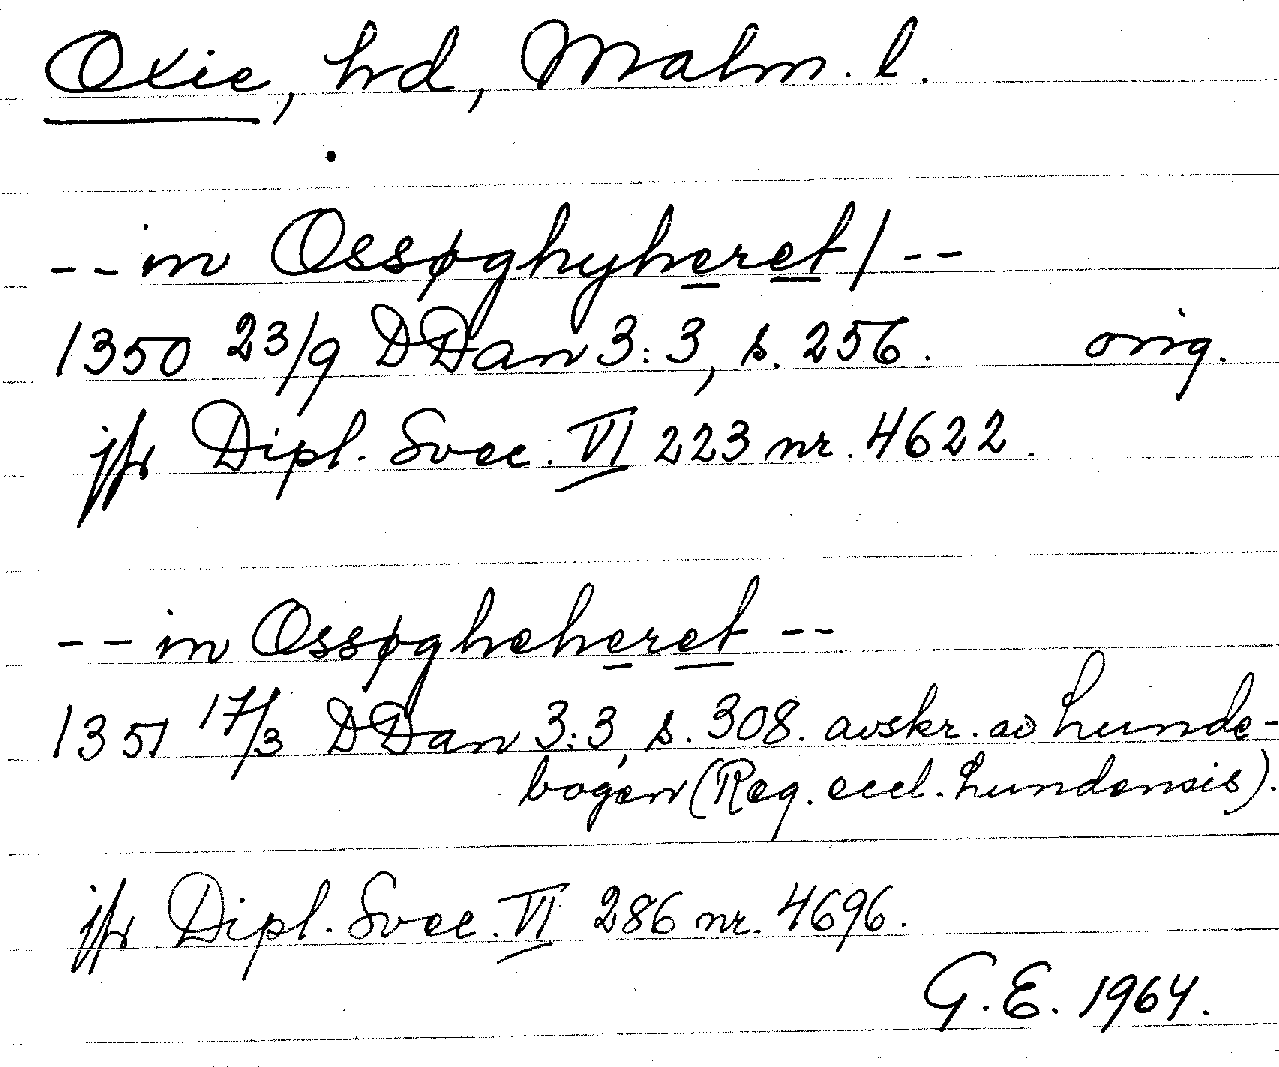 Oxie, hd, Malm. l.
-- in Ossøghyheret/ --
1350 23/9 DDan 3:3, s. 256. orig.
jfr Dipl. Svec. VI 223 nr. 4622.
-- in Ossøgheheret --
1351 17/3 DDan 3:3, s. 308. avskr. av Lunde-
bogen (Reg. eccl. Lundensis).
jfr Dipl. Svec. VI 286 nr. 4696.
G.E. 1964.